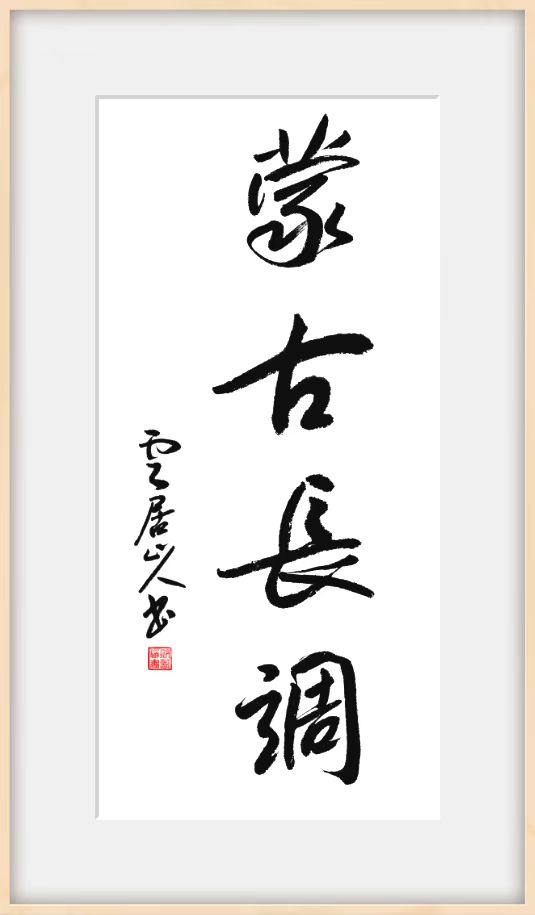 蒙古長調
雲居山人书